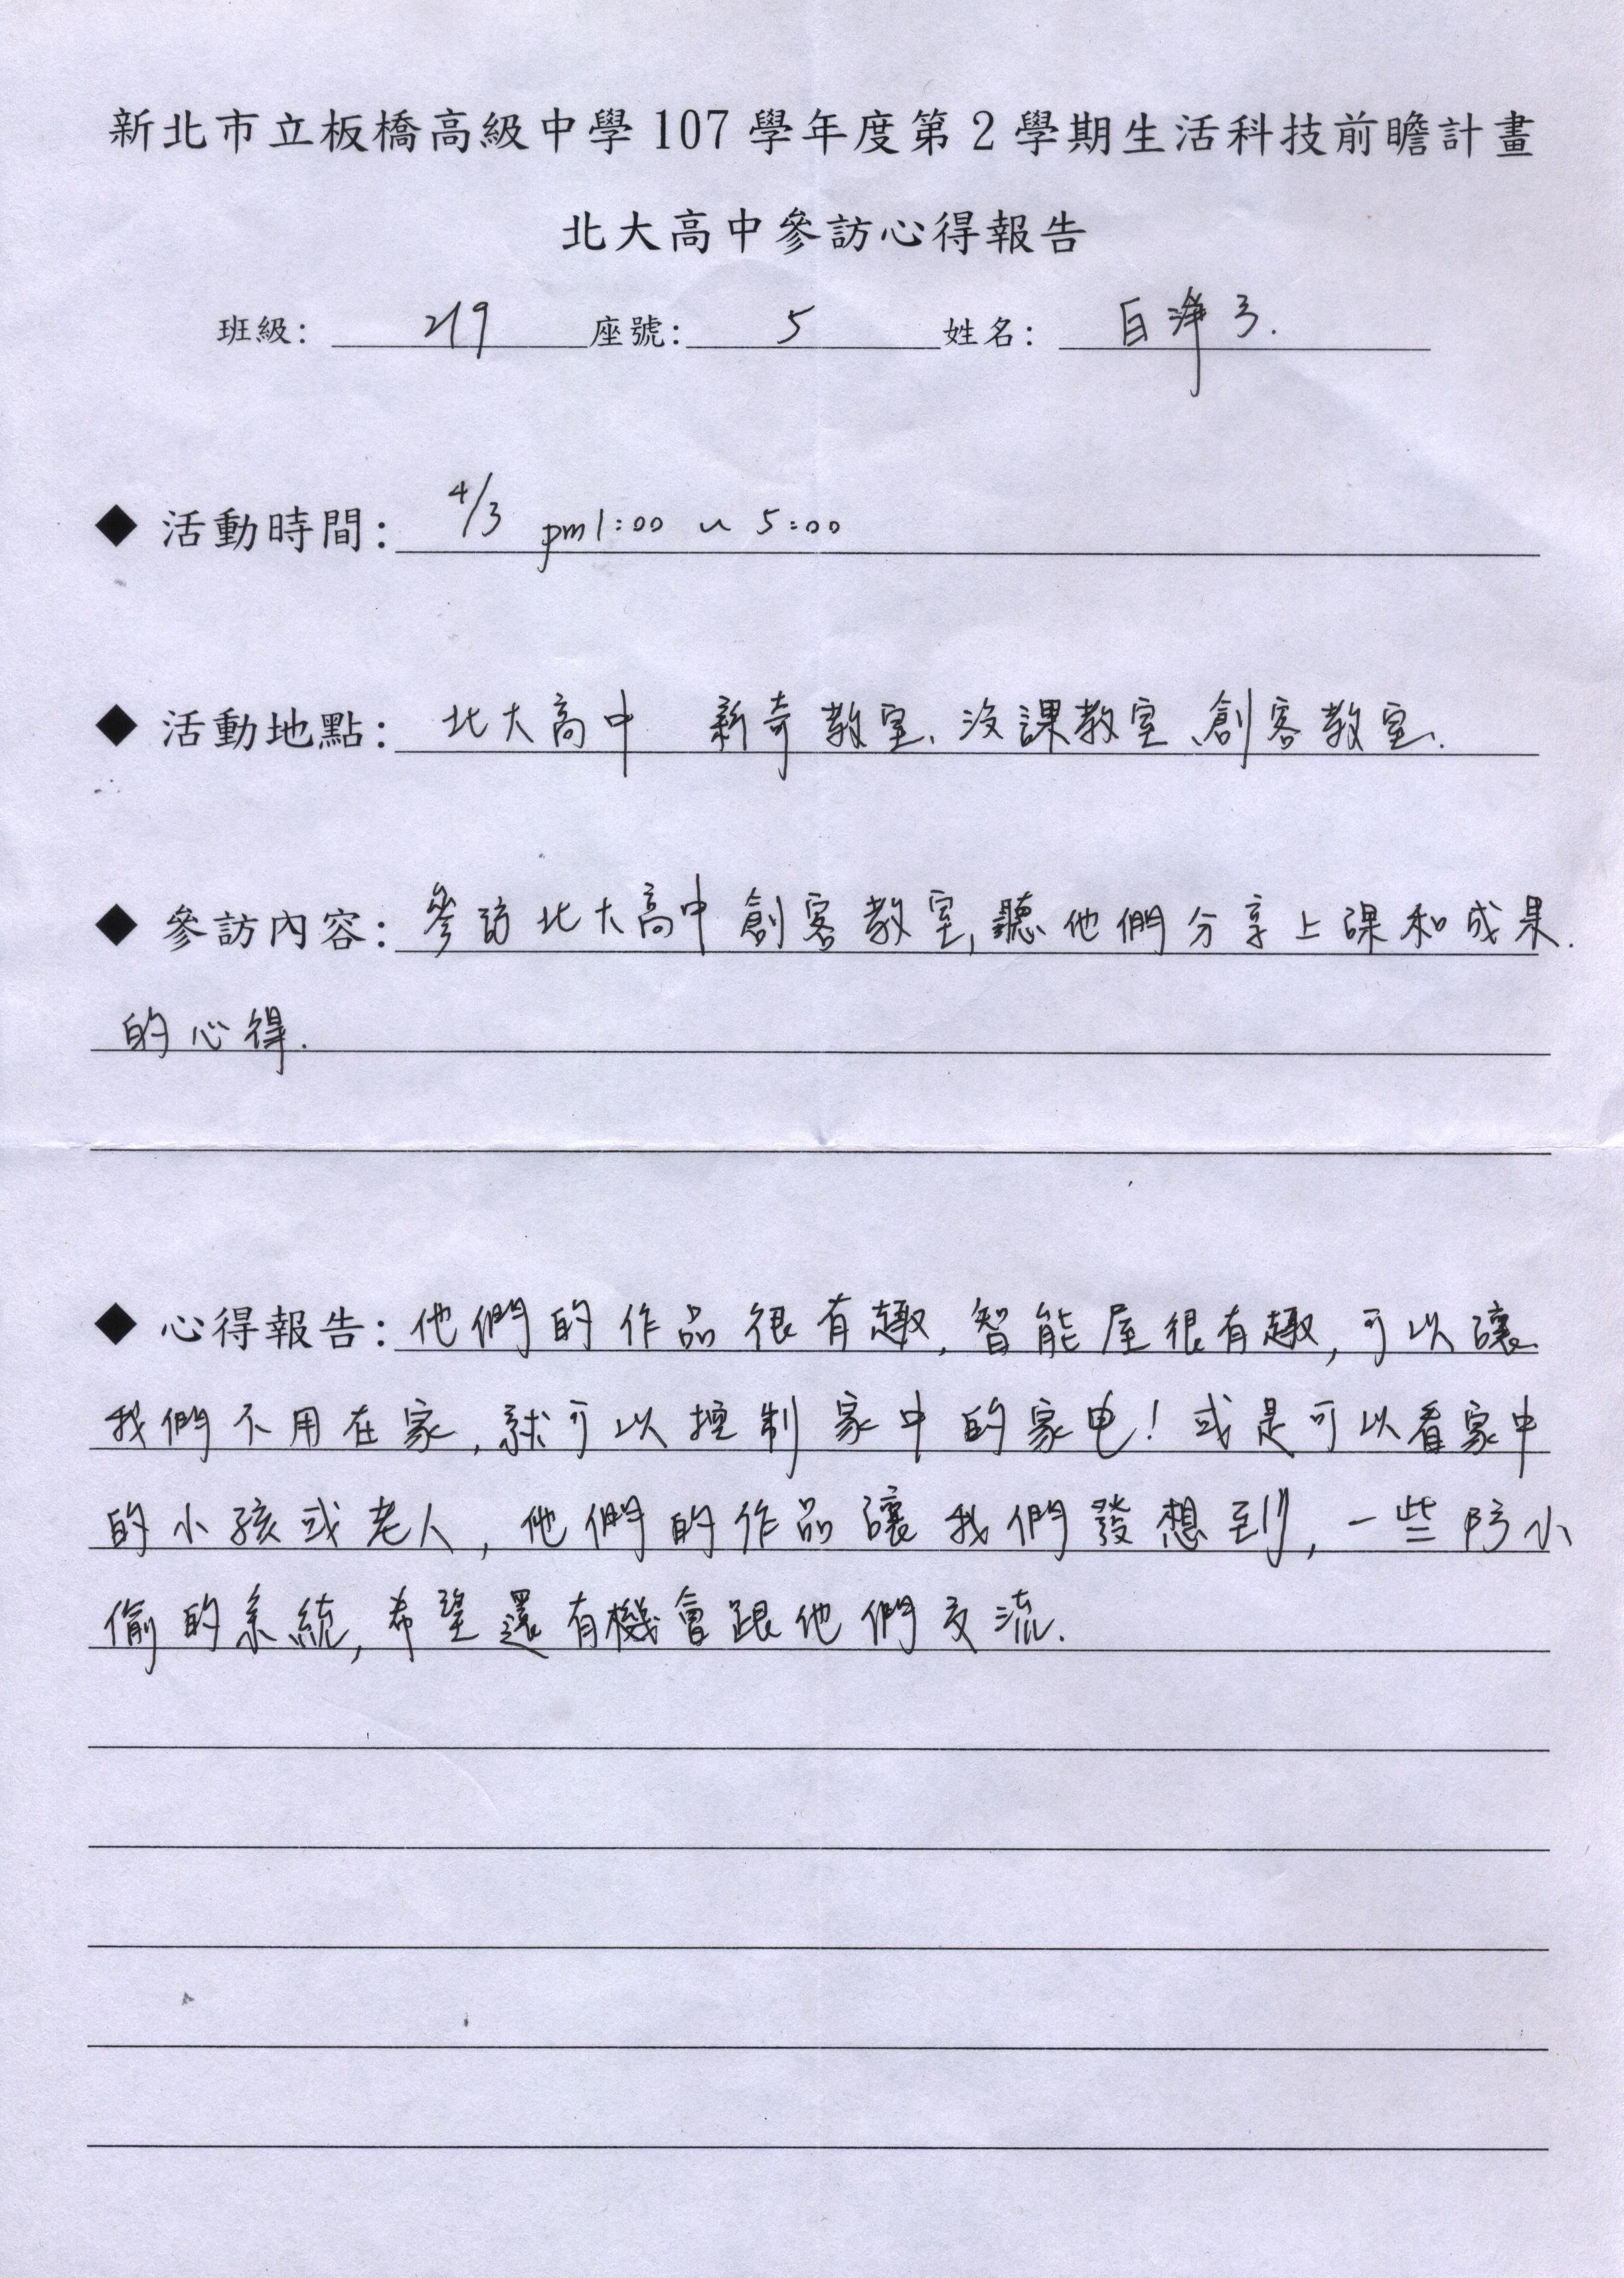 新北市立板橋高級中學 107 學年度第 2 學期生活科技前瞻計畫
北大高中參訪心得報告
班級： 219 座號： 5 姓名： 白淨
◆ 活動時間： 4/3 pm 1:00 ~ 5:00
◆ 活動地點： 北大高中 新奇教室、沒課教室、創客教室.
◆ 參訪內容： 參訪北大高中創客教室, 聽他們分享上課和成果.
的心得.
◆ 心得報告： 他們的作品很有趣, 智能屋很有趣, 可以讓
我們不用在家, 就可以控制家中的家电! 或是可以看家中
的小孩或老人, 他們的作品讓我們發想到, 一些防小
偷的系統, 希望還有機會跟他們交流.